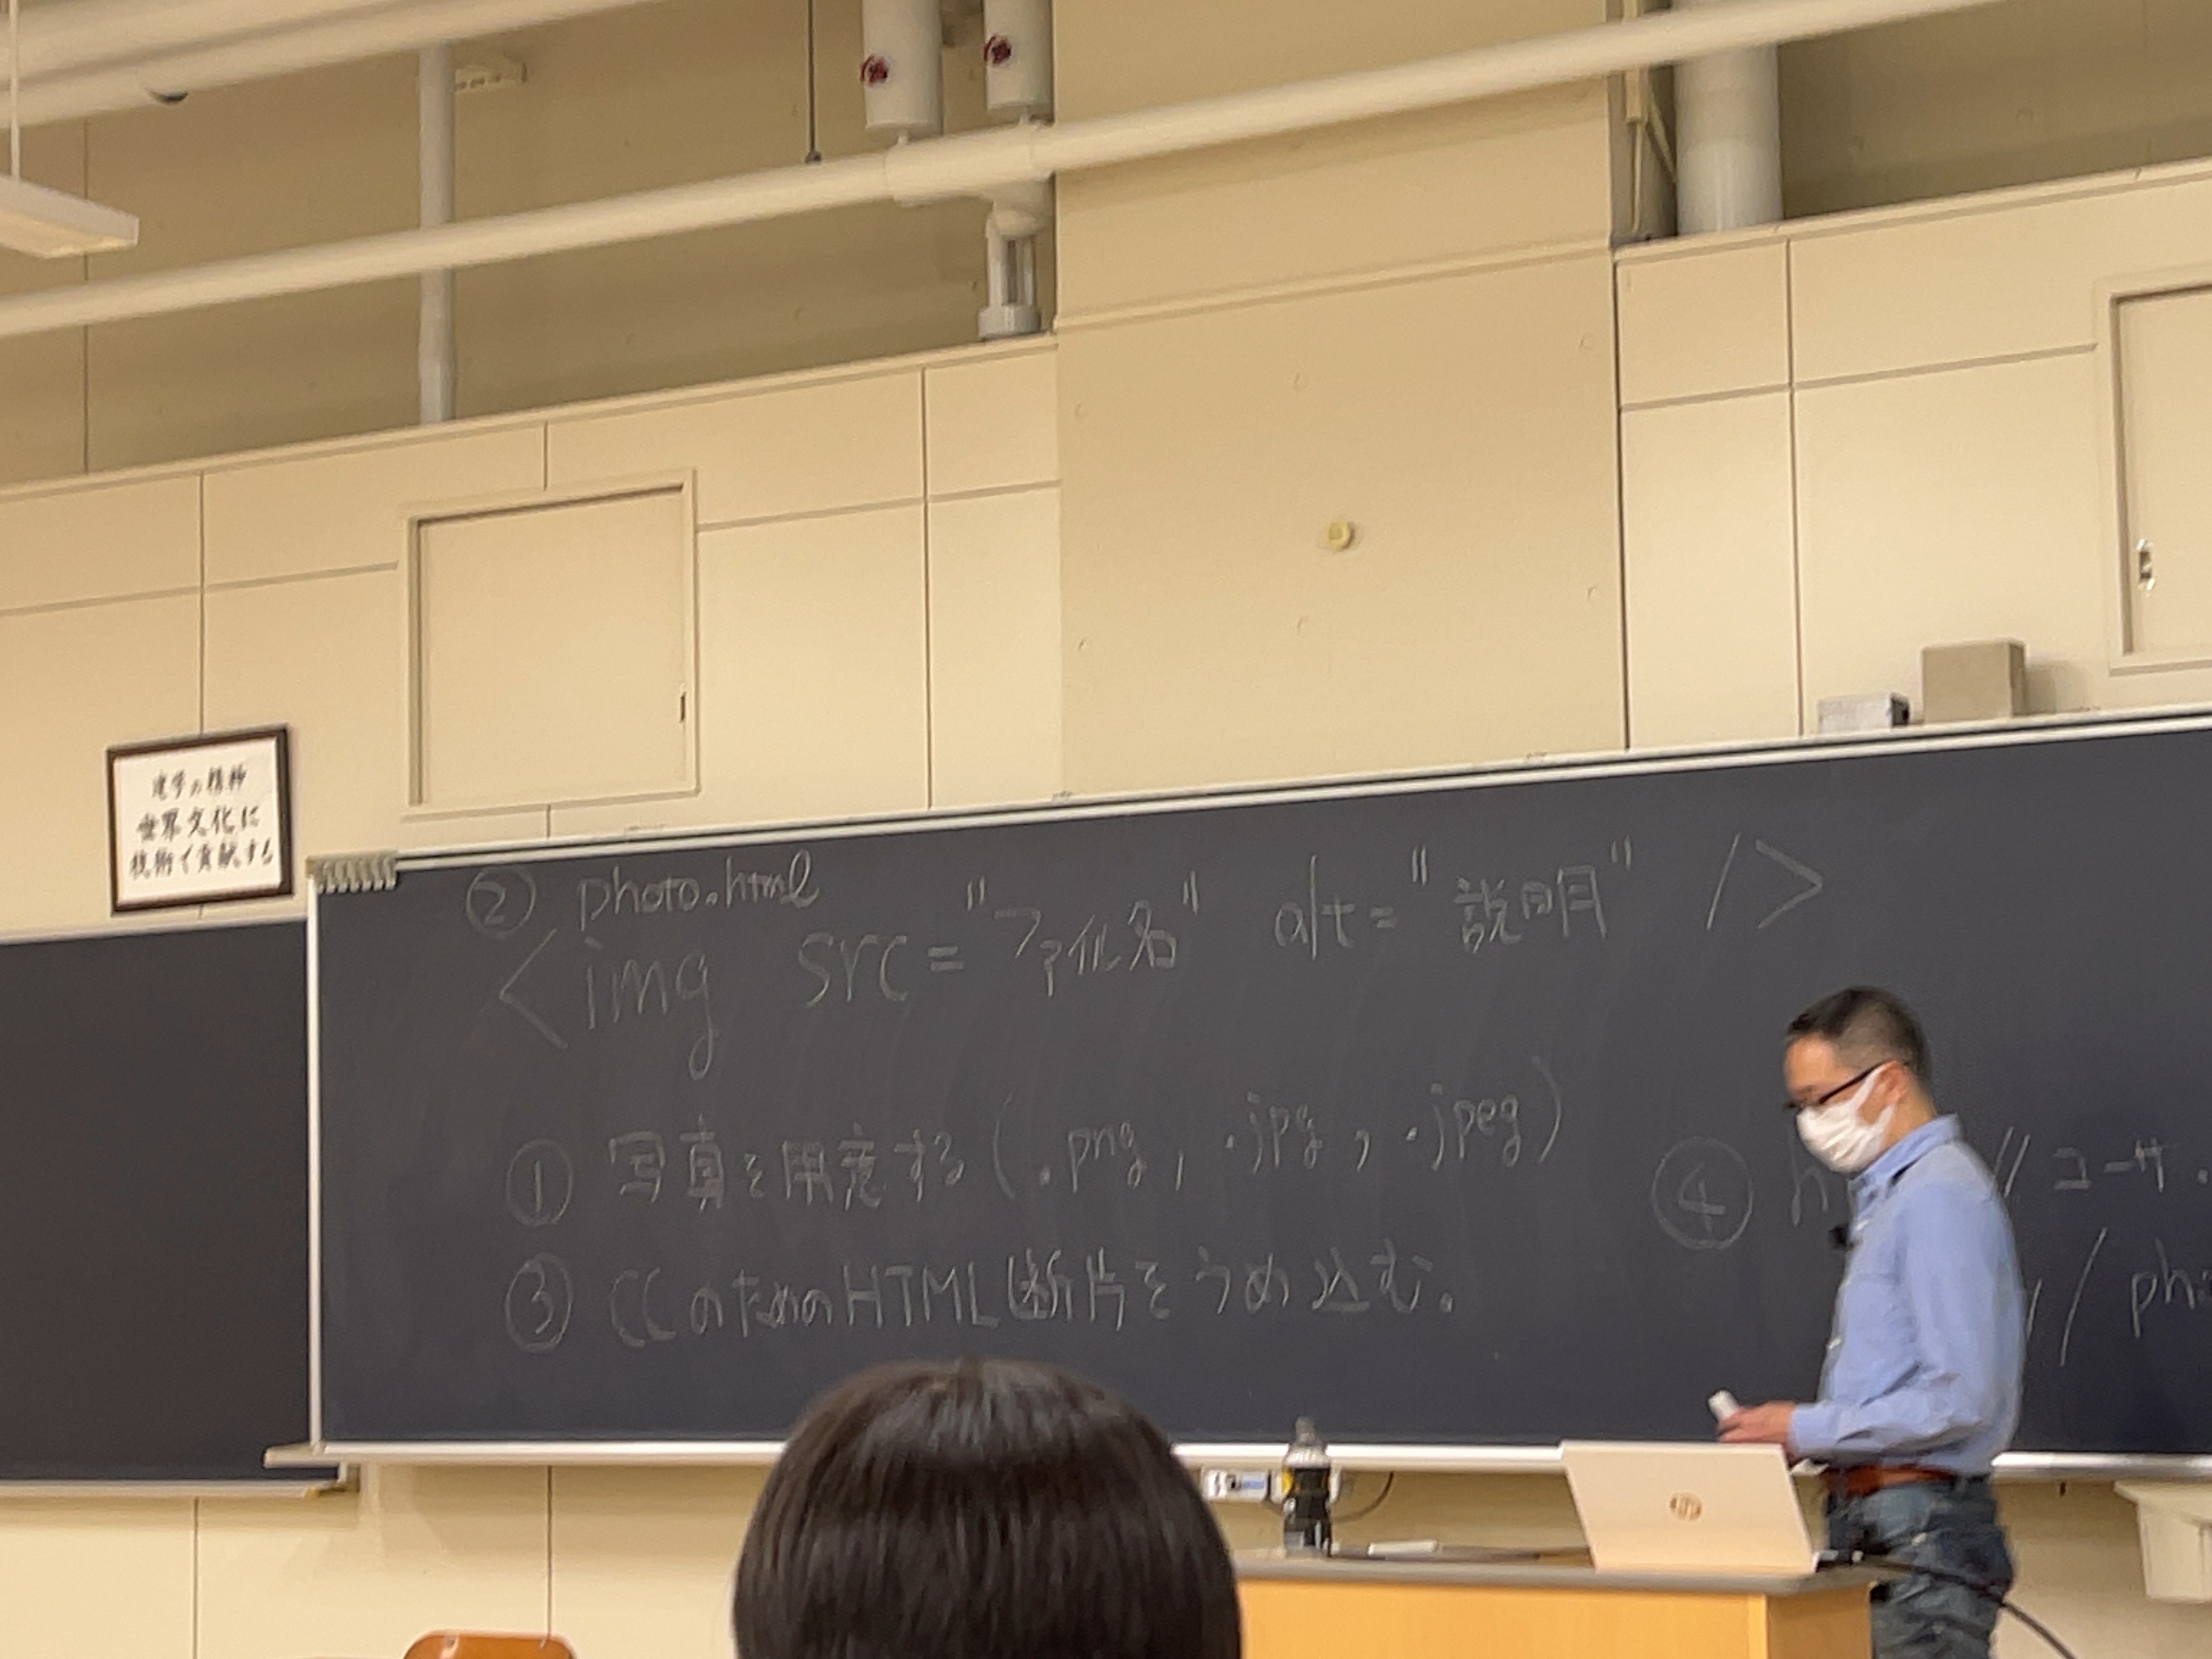 建学の精神
世界文化に
技術で貢献する
② photo.html
<img src="ファイル名" alt="説明" />
① 写真を用意する(.png, .jpg, .jpeg)
③ CCのためのHTML断片をうめ込む。
④ h // ユーザ.
/ ph
hp